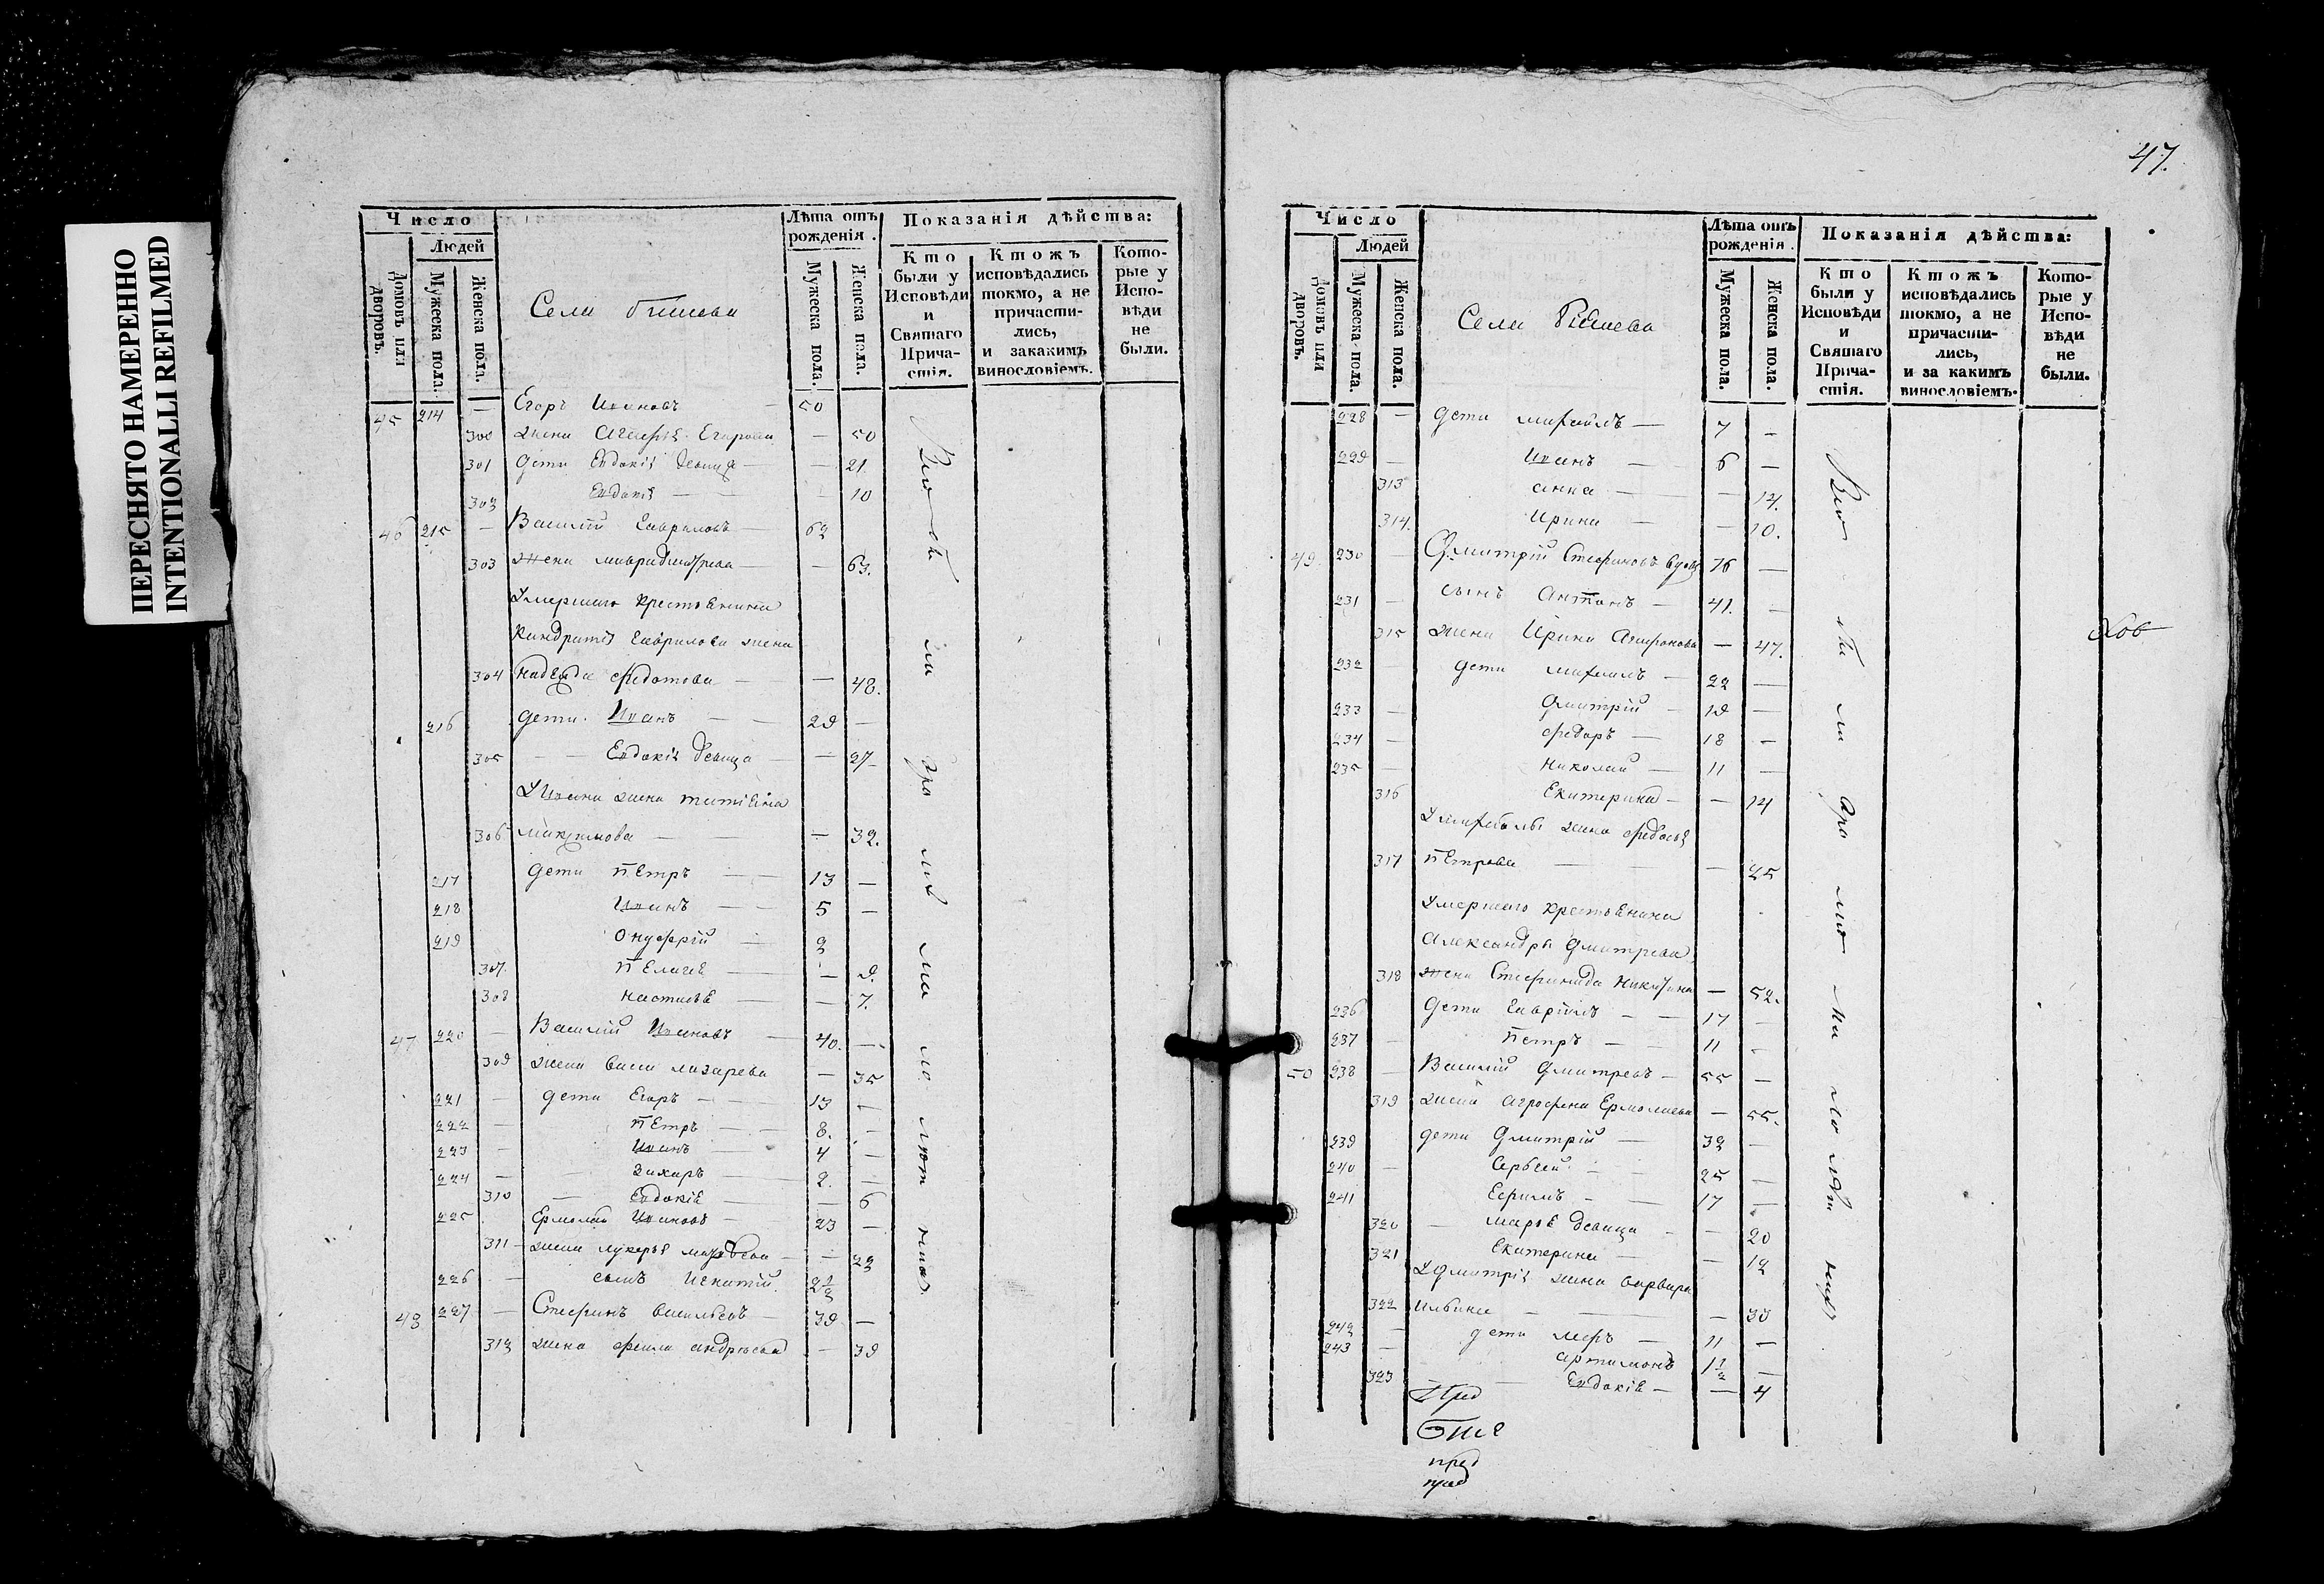 ПЕРЕСНЯТО НАМЕРЕННО
INTENTIONALLI REFILMED
Число
Людей
Домовъ или дворовъ.
Мужеска пола.
Женска пола.
Села
Лѣта отъ рожденія.
Мужеска пола.
Женска пола.
Показанія дѣйства:
Кто были у Исповѣди и Святаго Причастія.
Ктожъ исповѣдались токмо, а не причастились, и закакимъ винословіемъ.
Которые у Исповѣди не были.
45 214 — Егоръ Ивановъ — 50
300 жена Егорова — 50
301 дети Евдокія девица — — 21.
302 Евдокія — — 10
46 215 — Василій Гавриловъ — 62
303 жена мавра — — 63.
Умершаго крестьянина
Кондратія Гаврилова жена
304 Надежда федотова — — 48.
216 дети. Иванъ — — 29 —
305 — — Евдокія девица — — 27
У Ивана жена татіяна
306 максимова — — 32.
217 дети пЕтръ — — 13 —
218 Иванъ — — 5 —
219 Онуфрій — 2
307. пЕлагея — — 9.
308 настасья — — 7.
47 220 — Василій Ивановъ — 40. —
309 жена лазарева — 35
221 — дети Егоръ — 13 —
222 — пЕтръ — — 8. —
223 — Иванъ — 4 —
224 — Захаръ — 2. —
310 — Евдокія — — 6
225 Ермолай Ивановъ — 23 —
311 — жена лукерья — — 23
226 — сынъ Игнатій. 2 1/2
48 227 — Стефанъ васильевъ — 39 —
312 жена фекла андрѣева — 39
47.
Число
Людей
Домовъ или дворовъ.
Мужеска пола.
Женска пола.
Села
Лѣта отъ рожденія.
Мужеска пола.
Женска пола.
Показанія дѣйства:
Кто были у Исповѣди и Святаго Причастія.
Ктожъ исповѣдались токмо, а не причастились, и за какимъ винословіемъ.
Которые у Исповѣди не были.
228 — дети михаилъ — 7 —
229 — Иванъ — 6 —
313 анна — — 14.
314. Ирина — — 10.
49 230 — Дмитрій Стефановъ вдовъ 76 —
231 — сынъ Антонъ — 41. —
315 жена Ирина Агафонова — 47.
232 дети михаилъ — 22 —
233 — Дмитрій — 19 —
234 — федоръ — 18 —
235 — николай — 11 —
316 Екатерина — — 14
У михаилы жена федосья
317 пЕтрова — — 25
Умершаго крестьянина
Александра Дмитрева
318 жена Стефанида никитина — 52.
236 дети Гавріилъ — — 17 —
237 — Петръ — — 11 —
50 238 — Василій Дмитревъ — 55 —
319 жена агрофена Ермолаева — 55.
239 дети Дмитрій — 32 —
240 — Сергѣй — — 25 —
241 Ефимъ — — 17 —
320 — марья девица — — 20
321 Екатерина — — 12
У дмитрія жена варвара
322 Ильина — — — 30
242 — дети — 11 —
243 — артамонъ 1 1/2 —
323 — Евдокія — — 4
пред